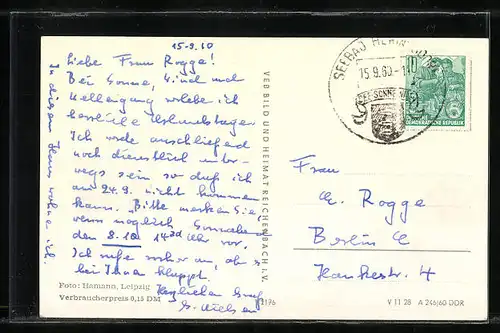 15-9.60
Liebe Frau Rogge!
Bei Sonne, Wind und
Wellengang verlebe ich
herrliche Urlaubstage
Ich werde anschließend
noch dienstlich unter-
wegs sein so daß ich
am 24.9. nicht kommen
kann. Bitte merken Sie,
wenn möglich Sonnabend
den 8.10. 14 Uhr vor.
Ich rufe vorher an, ob es
bei Ihnen klappt.
Herzlichen Gruß
In diesem Haus wohne ich.
Foto: Hamann, Leipzig
Verbraucherpreis 0,15 DM
VEB BILD UND HEIMAT REICHENBACH i. V.
SEEBAD
15.9.60
DEMOKRATISCHE REPUBLIK
Frau
E. Rogge
Berlin C
Hankestr. 4
V 11 28 A 246/60 DDR